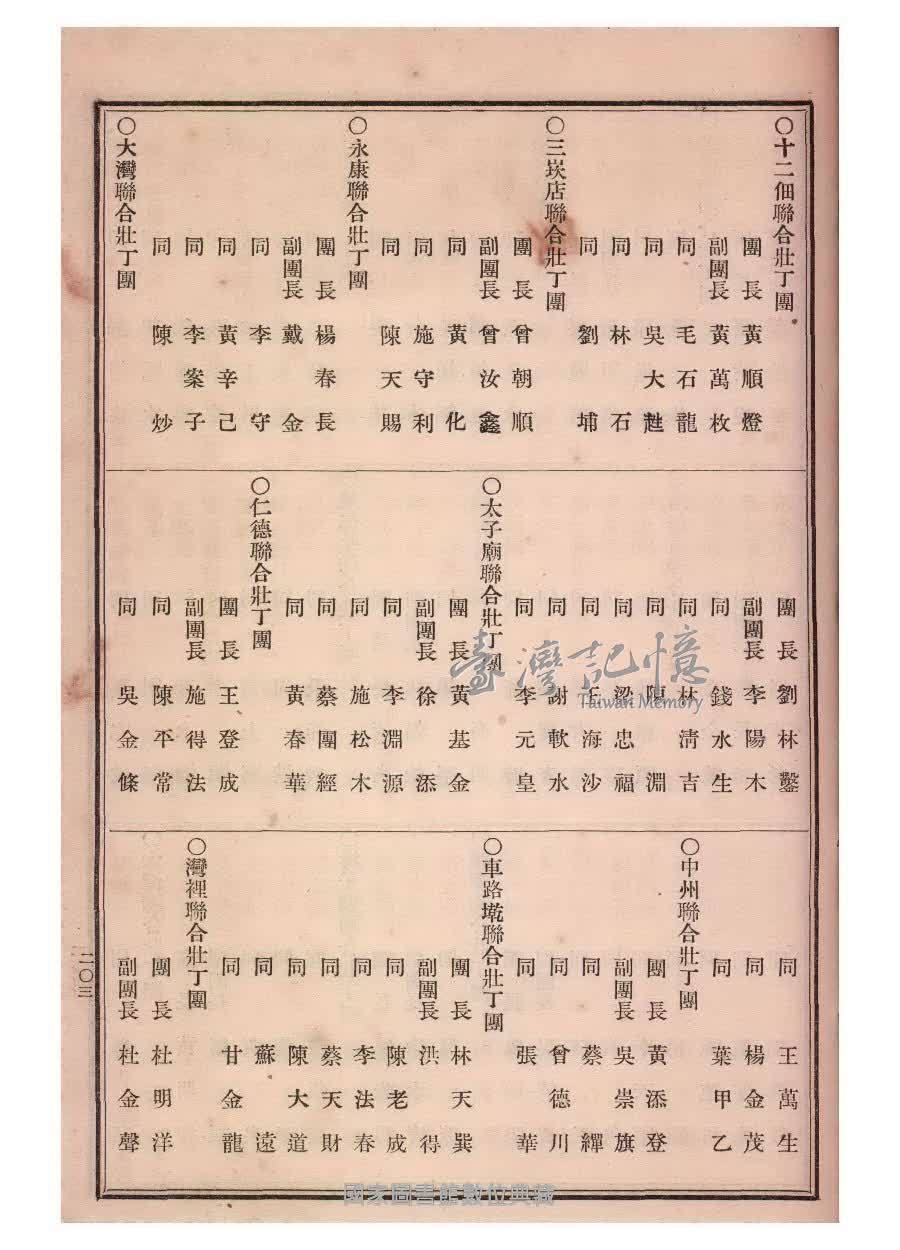 〇十二佃聯合壯丁團
團長 黃順燈
副團長 黃萬枚
同 毛石龍
同 吳大趖
同 林石
同 劉埔
〇三崁店聯合壯丁團
團長 曾朝順
副團長 曾汝鑫
同 黃化
同 施守利
同 陳天賜
〇永康聯合壯丁團
團長 楊春長
副團長 戴金
同 李守
同 黃辛己
同 李案子
同 陳炒
〇大灣聯合壯丁團
團長 劉林鑿
副團長 李陽木
同 錢水生
同 林清吉
同 陳淵
同 梁忠福
同 王海沙
同 謝軟水
同 李元皇
〇太子廟聯合壯丁團
團長 黃基金
副團長 徐添
同 李淵源
同 施松木
同 蔡團經
同 黃春華
〇仁德聯合壯丁團
團長 王登成
副團長 施得法
同 陳平常
同 吳金條
同 王萬生
同 楊金茂
同 葉甲乙
〇中州聯合壯丁團
團長 黃添登
副團長 吳崇旗
同 蔡繟
同 曾德川
同 張華
〇車路墘聯合壯丁團
團長 林天巽
副團長 洪得
同 陳老成
同 李法春
同 蔡天財
同 陳大道
同 蘇遠
同 甘金龍
〇灣裡聯合壯丁團
團長 杜明洋
副團長 杜金聲
二〇三
臺灣記憶
Taiwan Memory
國家圖書館數位典藏